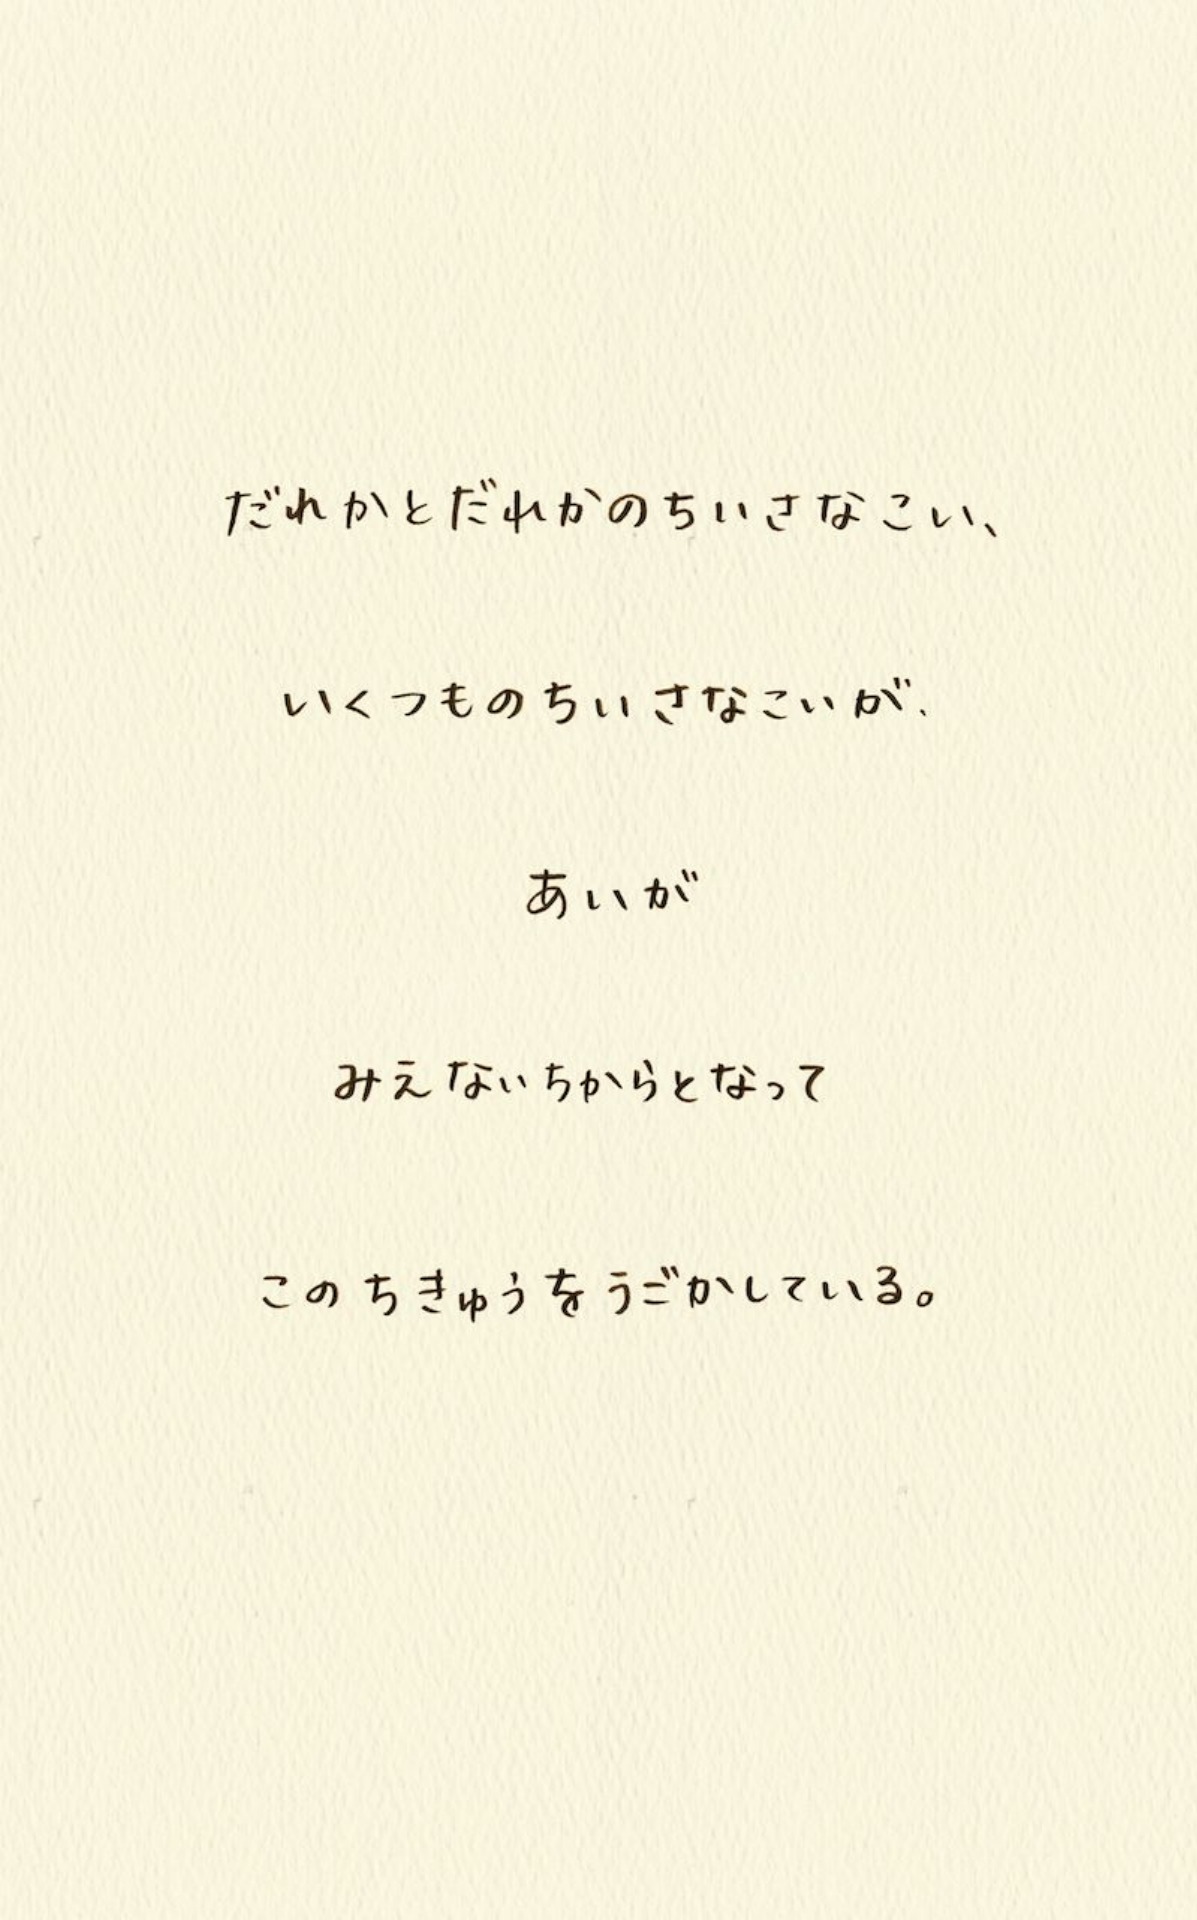 だれかとだれかのちいさなこい、
いくつものちいさなこいが、
あいが
みえないちからとなって
このちきゅうをうごかしている。